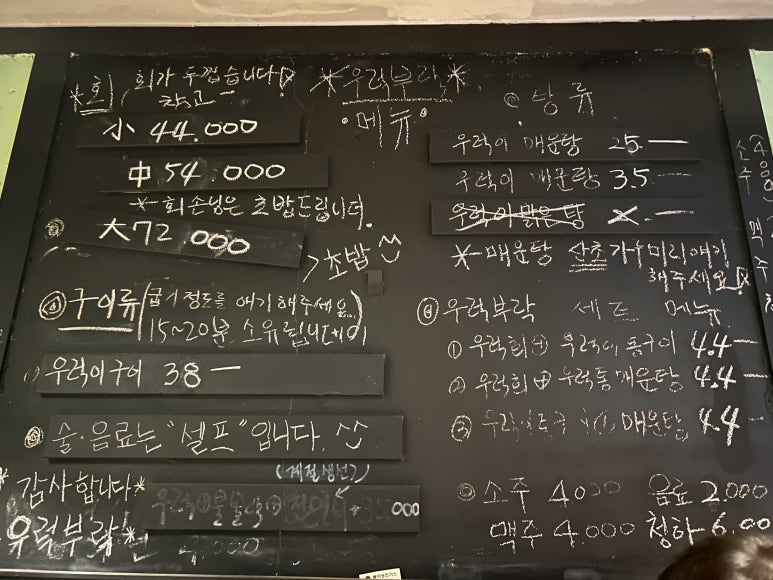 *우럭부락*
•메뉴•
*회 / 회가 두껍습니다!
참고 ー
小 44.000
中 54.000
* 회손님은 초밥드립니다.
大 72.000
>초밥 ^^
구이류 (굽기정도를 얘기해주세요
15~20분 소유됩니데이)
우럭이구이 38 ー
술·음료는 "셀프"입니다. ^^
감사합니다*
우럭부락!*
(계절생선)
000
탕류
우럭이 매운탕 25.ー
우럭이 매운탕 35.ー
우럭이 맑은탕 X.ー
* 매운탕 산초가루 미리얘기
해주세요
우럭부락 세트 메뉴
① 우럭회 + 우럭이 통구이 4.4ー
② 우럭회 + 우럭통매운탕 4.4ー
③ 매운탕 4.4ー
소주 4000 음료 2.000
맥주 4.000 청하 6.00